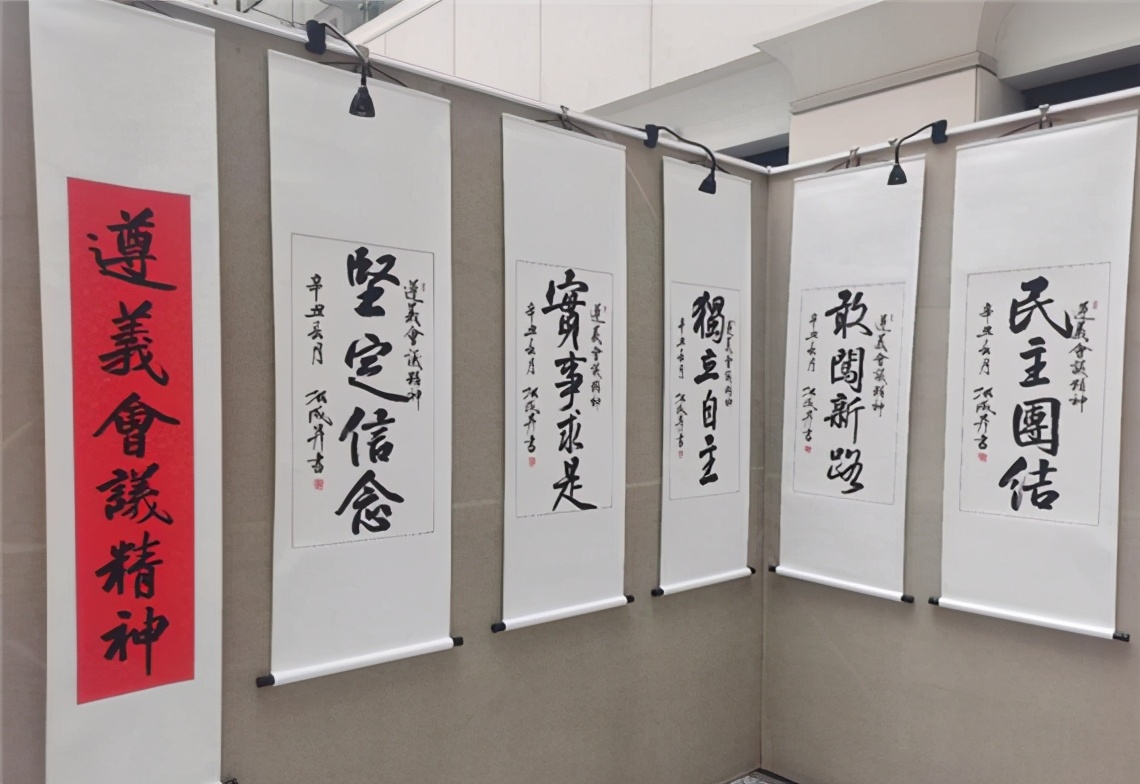 遵義會議精神
遵義會議精神
堅定信念
辛丑長月
成昇書
遵義會議精神
實事求是
辛丑長月
成昇書
遵義會議精神
獨立自主
辛丑長月
成昇書
遵義會議精神
敢闖新路
辛丑長月
成昇書
遵義會議精神
民主團結
辛丑長月
成昇書